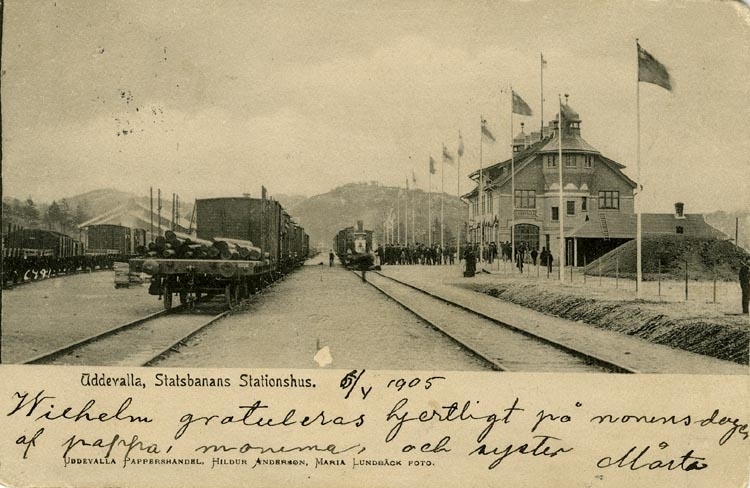 6491
Uddevalla, Statsbanans Stationshus. 6/V 1905
Wilhelm gratuleras hjertligt på
af pappa, och syster Märta
UDDEVALLA PAPPERSHANDEL, HILDUR ANDERSON, MARIA LUNDBÄCK FOTO.